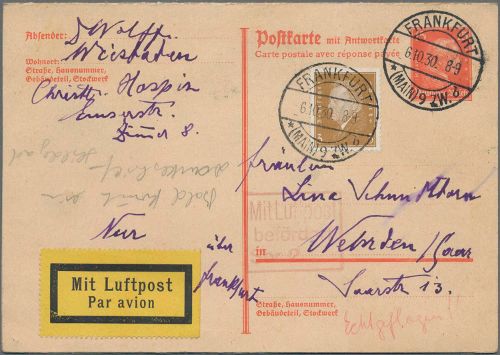 Absender:
D Wolff.
Wiesbaden
Wohnort:
Straße, Hausnummer,
Gebäudeteil, Stockwerk
Christl. Hospiz
Emserstr.
Zimmer 8.
Nur
über
Frankfurt
Mit Luftpost
Par avion
Postkarte mit Antwortkarte
Carte postale avec réponse payée
FRANKFURT
6.10.30. 8-9
*(MAIN) 9 ZW. b
FRANKFURT
6.10.30. 8-9
*(MAIN) 9 ZW. b
Fräulein
Lina Schmidtborn
Mit Luftpost
befördert
in
Wehrden/Saar
Saarstr 13.
Straße, Hausnummer,
Gebäudeteil, Stockwerk